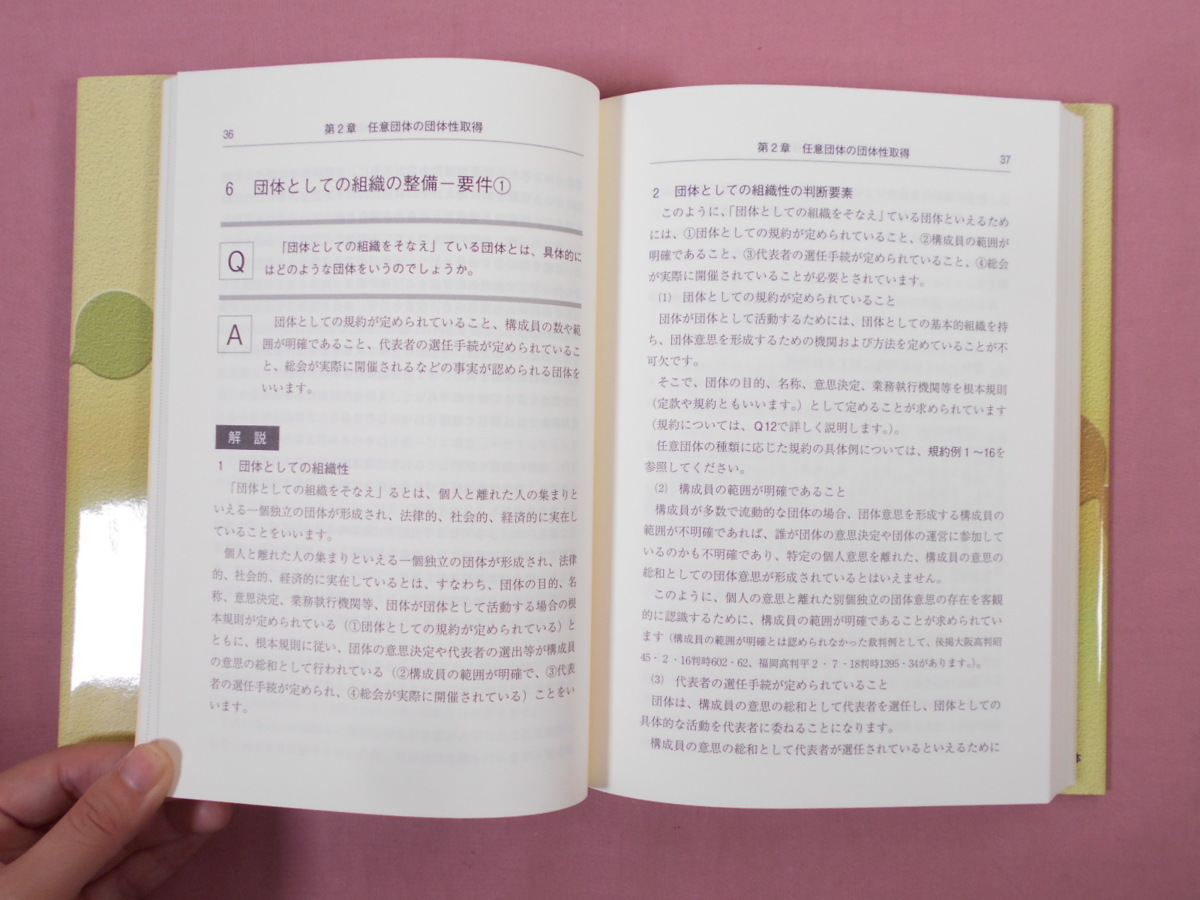 36
第2章　任意団体の団体性取得
6　団体としての組織の整備－要件①
Q
「団体としての組織をそなえ」ている団体とは、具体的に
はどのような団体をいうのでしょうか。
A
団体としての規約が定められていること、構成員の数や範
囲が明確であること、代表者の選任手続が定められているこ
と、総会が実際に開催されるなどの事実が認められる団体を
いいます。
解　説
1　団体としての組織性
「団体としての組織をそなえ」るとは、個人と離れた人の集まりと
いえる一個独立の団体が形成され、法律的、社会的、経済的に実在し
ていることをいいます。
個人と離れた人の集まりといえる一個独立の団体が形成され、法律
的、社会的、経済的に実在しているとは、すなわち、団体の目的、名
称、意思決定、業務執行機関等、団体が団体として活動する場合の根
本規則が定められている（①団体としての規約が定められている）と
ともに、根本規則に従い、団体の意思決定や代表者の選出等が構成員
の意思の総和として行われている（②構成員の範囲が明確で、③代表
者の選任手続が定められ、④総会が実際に開催されている）ことをい
います。
第2章　任意団体の団体性取得
37
2　団体としての組織性の判断要素
このように、「団体としての組織をそなえ」ている団体といえるため
には、①団体としての規約が定められていること、②構成員の範囲が
明確であること、③代表者の選任手続が定められていること、④総会
が実際に開催されていることが必要とされています。
(1)　団体としての規約が定められていること
団体が団体として活動するためには、団体としての基本的組織を持
ち、団体意思を形成するための機関および方法を定めていることが不
可欠です。
そこで、団体の目的、名称、意思決定、業務執行機関等を根本規則
（定款や規約ともいいます。）として定めることが求められています
（規約については、Q12で詳しく説明します。）。
任意団体の種類に応じた規約の具体例については、規約例1～16を
参照してください。
(2)　構成員の範囲が明確であること
構成員が多数で流動的な団体の場合、団体意思を形成する構成員の
範囲が不明確であれば、誰が団体の意思決定や団体の運営に参加して
いるのかも不明確であり、特定の個人意思を離れた、構成員の意思の
総和としての団体意思が形成されているとはいえません。
このように、個人の意思と離れた別個独立の団体意思の存在を客観
的に認識するために、構成員の範囲が明確であることが求められてい
ます（構成員の範囲が明確とは認められなかった裁判例として、後掲大阪高判昭
45・2・16判時602・62、福岡高判平2・7・18判時1395・34があります。）。
(3)　代表者の選任手続が定められていること
団体は、構成員の意思の総和として代表者を選任し、団体としての
具体的な活動を代表者に委ねることになります。
構成員の意思の総和として代表者が選任されているといえるために